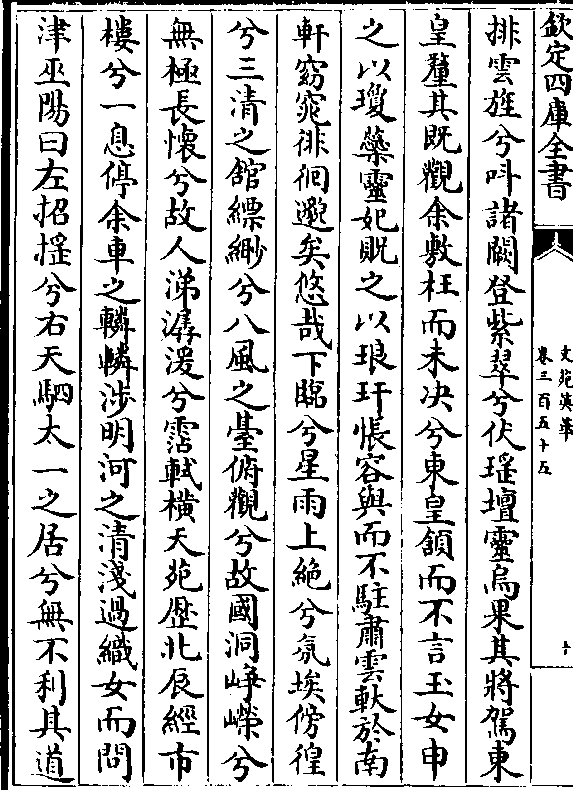 欽定四庫全書
文苑英華
卷三百五十五
十
排雲旌兮叫諸闕登紫翠兮伏瑶壇靈烏果其將駕東
皇釐其既觀余敷枉而未決兮東皇頷而不言玉女申
之以瓊蘂靈妃貺之以琅玕悵容與而不駐肅雲軑於南
軒窈窕徘徊邈矣悠哉下臨兮星雨上絶兮氛埃傍徨
兮三清之館縹緲兮八風之臺俯觀兮故國洞崢嶸兮
無極長懷兮故人涕潺湲兮霑軾横天苑歴北辰經市
樓兮一息停余車之轔轔涉明河之清淺過織女而問
津巫陽曰左招揺兮右天駟太一之居兮無不利其道